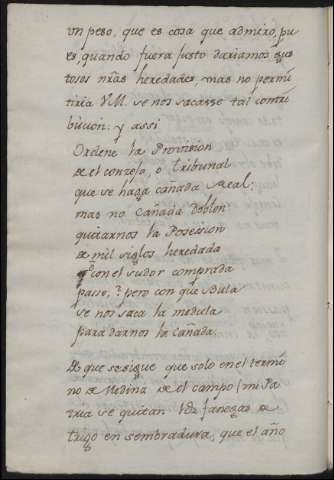 un peso, que es cosa que admiro, pu
es, quando fuera justo dariamos gus
tosos nrãs heredades, mas no permi
tiria V.M. se nos sacasse tal contri
bucion. y assi
Ordene la Provision
de el consejo, o tribunal
que se haga cañada Real;
mas no Cañada doblon
quitarnos la Posesion
de mil siglos heredada
qᵉ con el sudor comprada
passo, ? pero con que Bula
se nos saca la medula
para darnos la Cañada.
De que se sigue que solo en el termi
no de Medina de el campo (mi Pa
tria se quitan fanegas de
trigo en sembradura, que el año